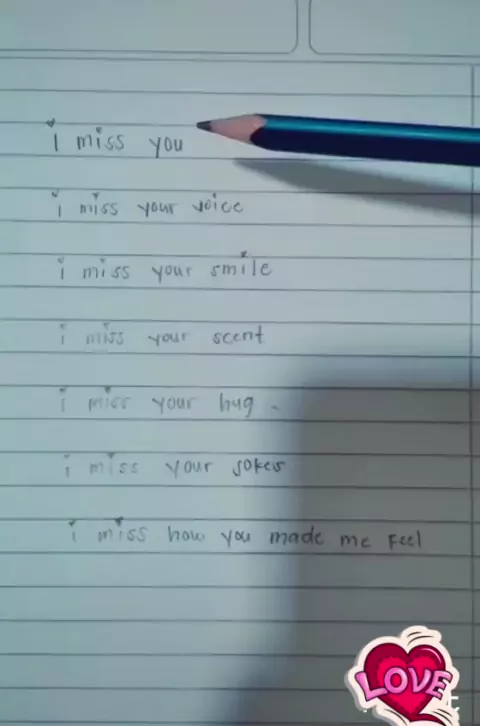 i miss you
i miss your voice
i miss your smile
i miss your scent
i miss your hug.
i miss your jokes
i miss how you made me feel
LOVE